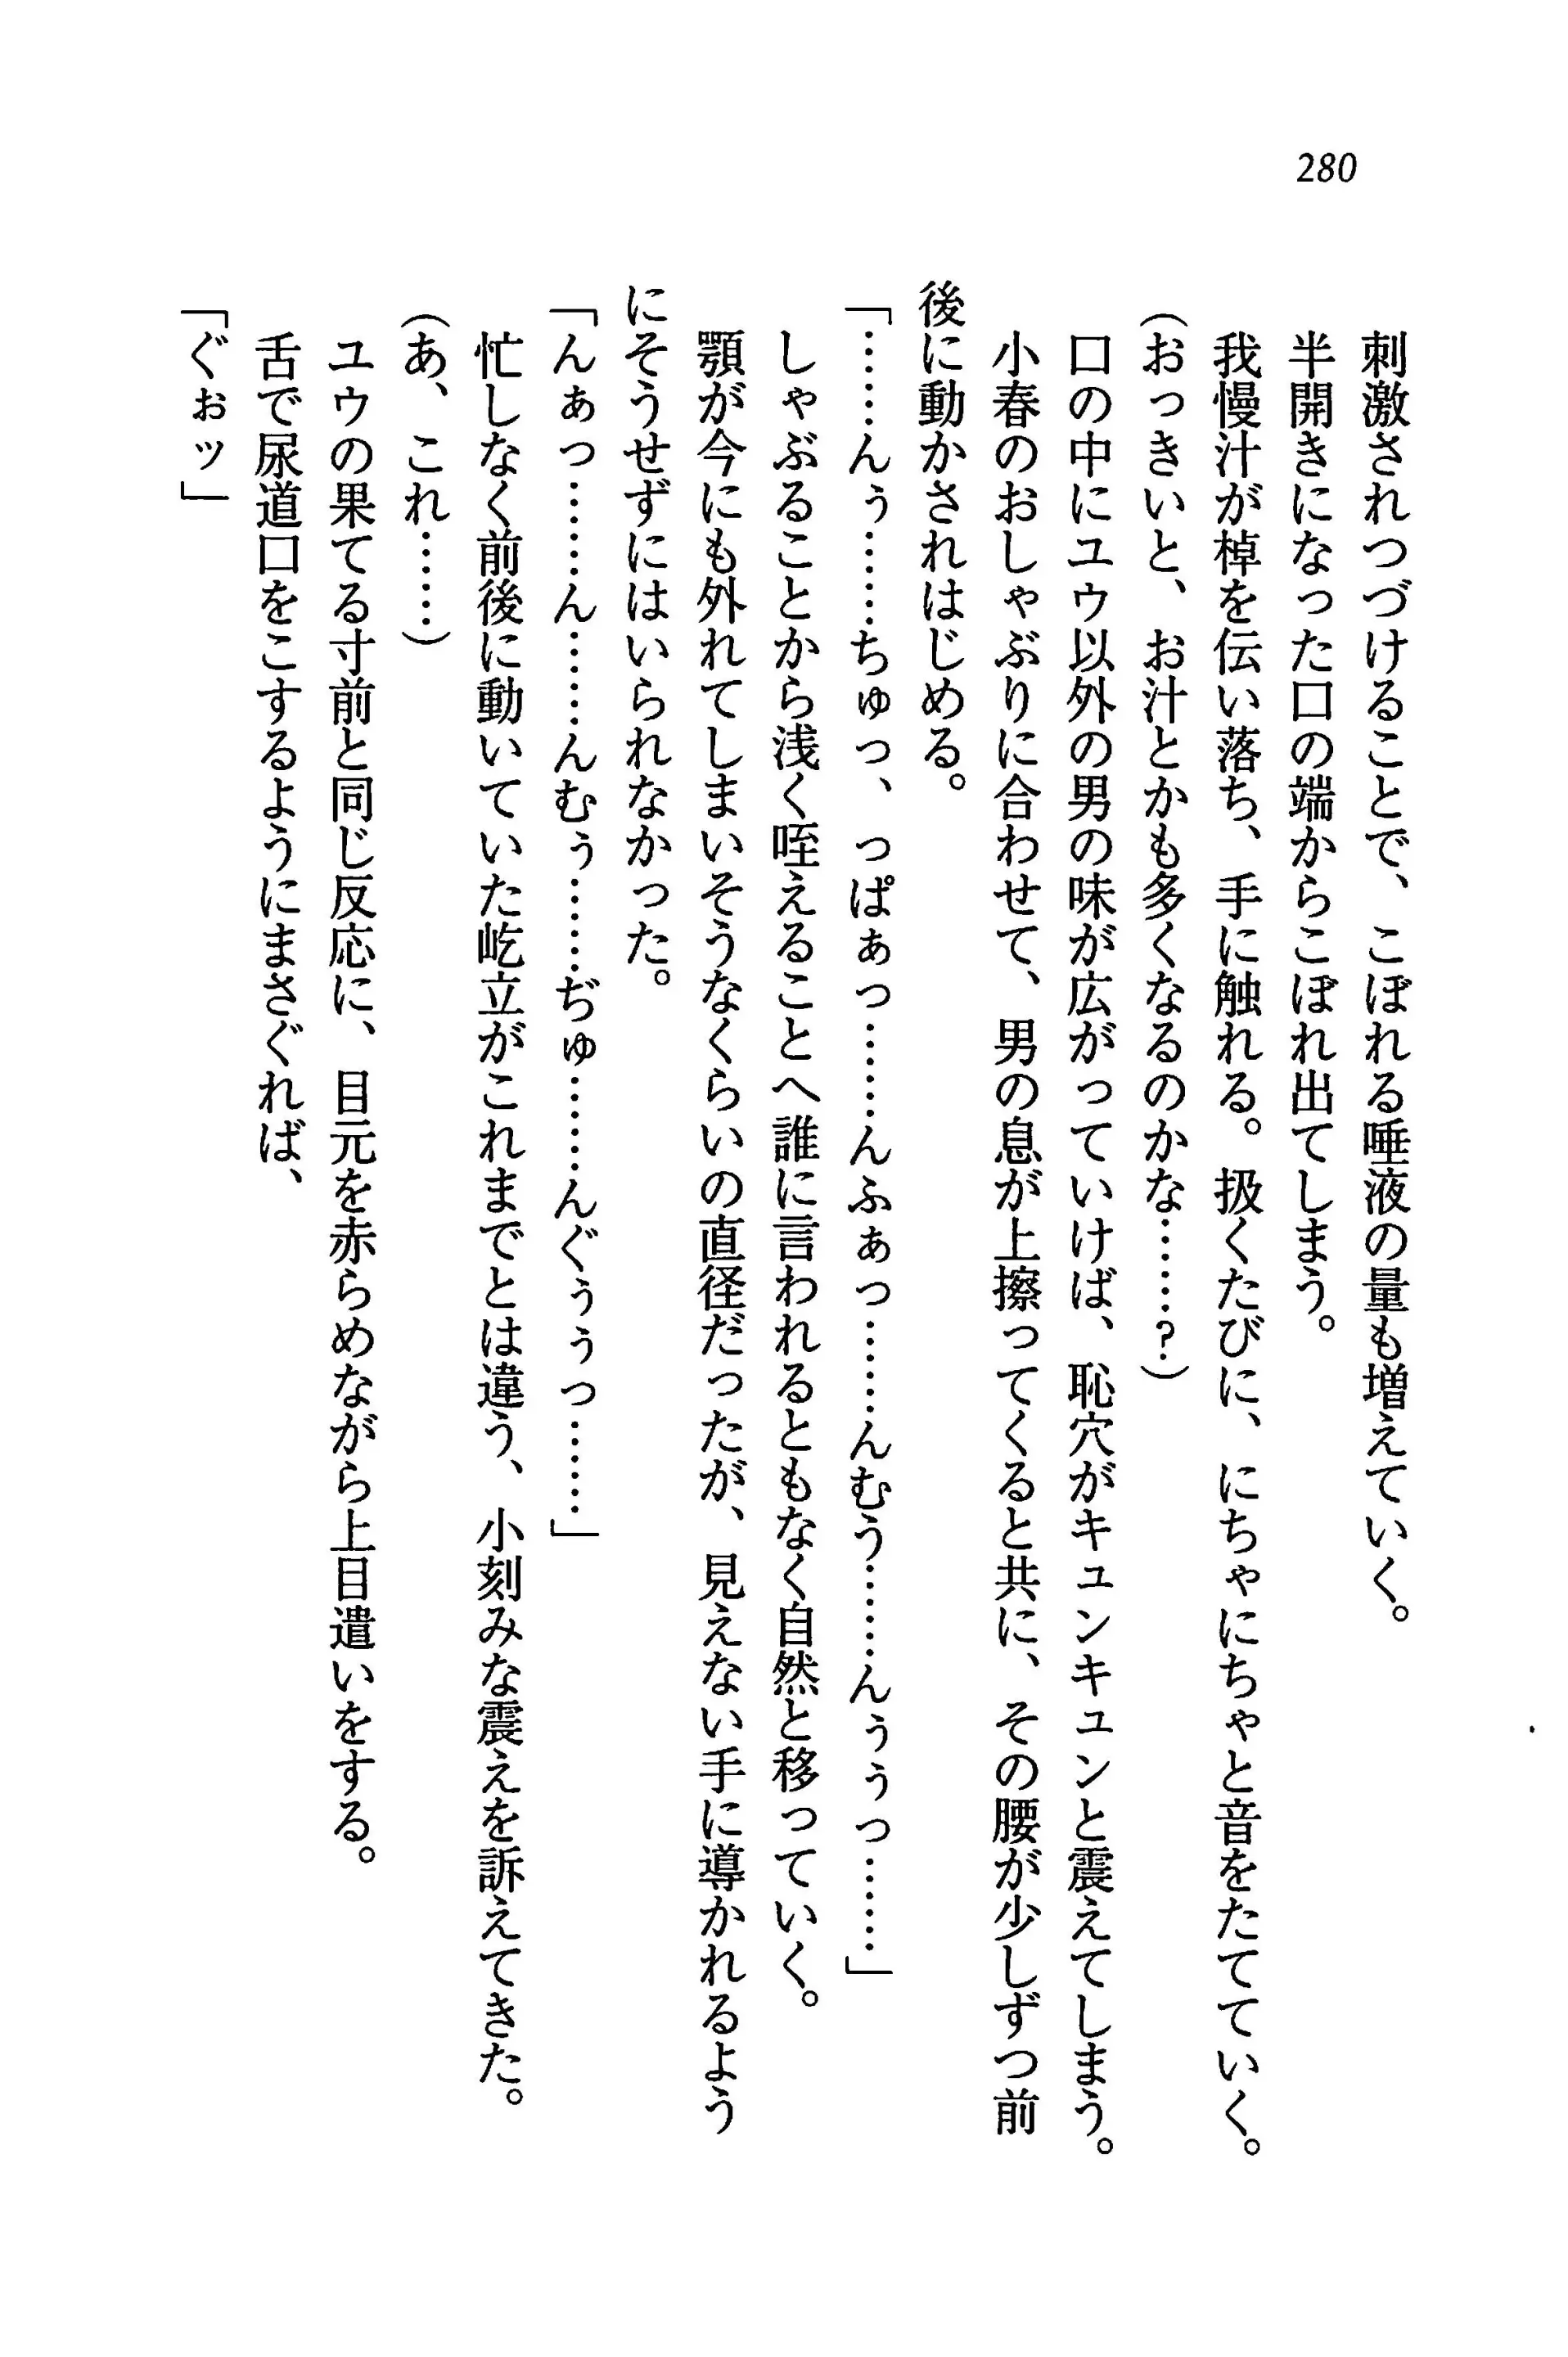 280
刺激されつづけることで、こぼれる唾液の量も増えていく。
半開きになった口の端からこぼれ出てしまう。
我慢汁が棹を伝い落ち、手に触れる。扱くたびに、にちゃにちゃと音をたてていく。
(おっきいと、お汁とかも多くなるのかな……?)
口の中にユウ以外の男の味が広がっていけば、恥穴がキュンキュンと震えてしまう。
小春のおしゃぶりに合わせて、男の息が上擦ってくると共に、その腰が少しずつ前
後に動かされはじめる。
「……んぅ………ちゅっ、っぱぁっ………んふぁっ………んむう………んぅぅっ……」
しゃぶることから浅く咥えることへ誰に言われるともなく自然と移っていく。
顎が今にも外れてしまいそうなくらいの直径だったが、見えない手に導かれるよう
にそうせずにはいられなかった。
「んぁっ………ん………んむぅ………ぢゅ………んぐぅぅっ………」
忙しなく前後に動いていた屹立がこれまでとは違う、小刻みな震えを訴えてきた。
(あ、これ……)
ユウの果てる寸前と同じ反応に、目元を赤らめながら上目遣いをする。
舌で尿道口をこするようにまさぐれば、
「ぐぉッ」